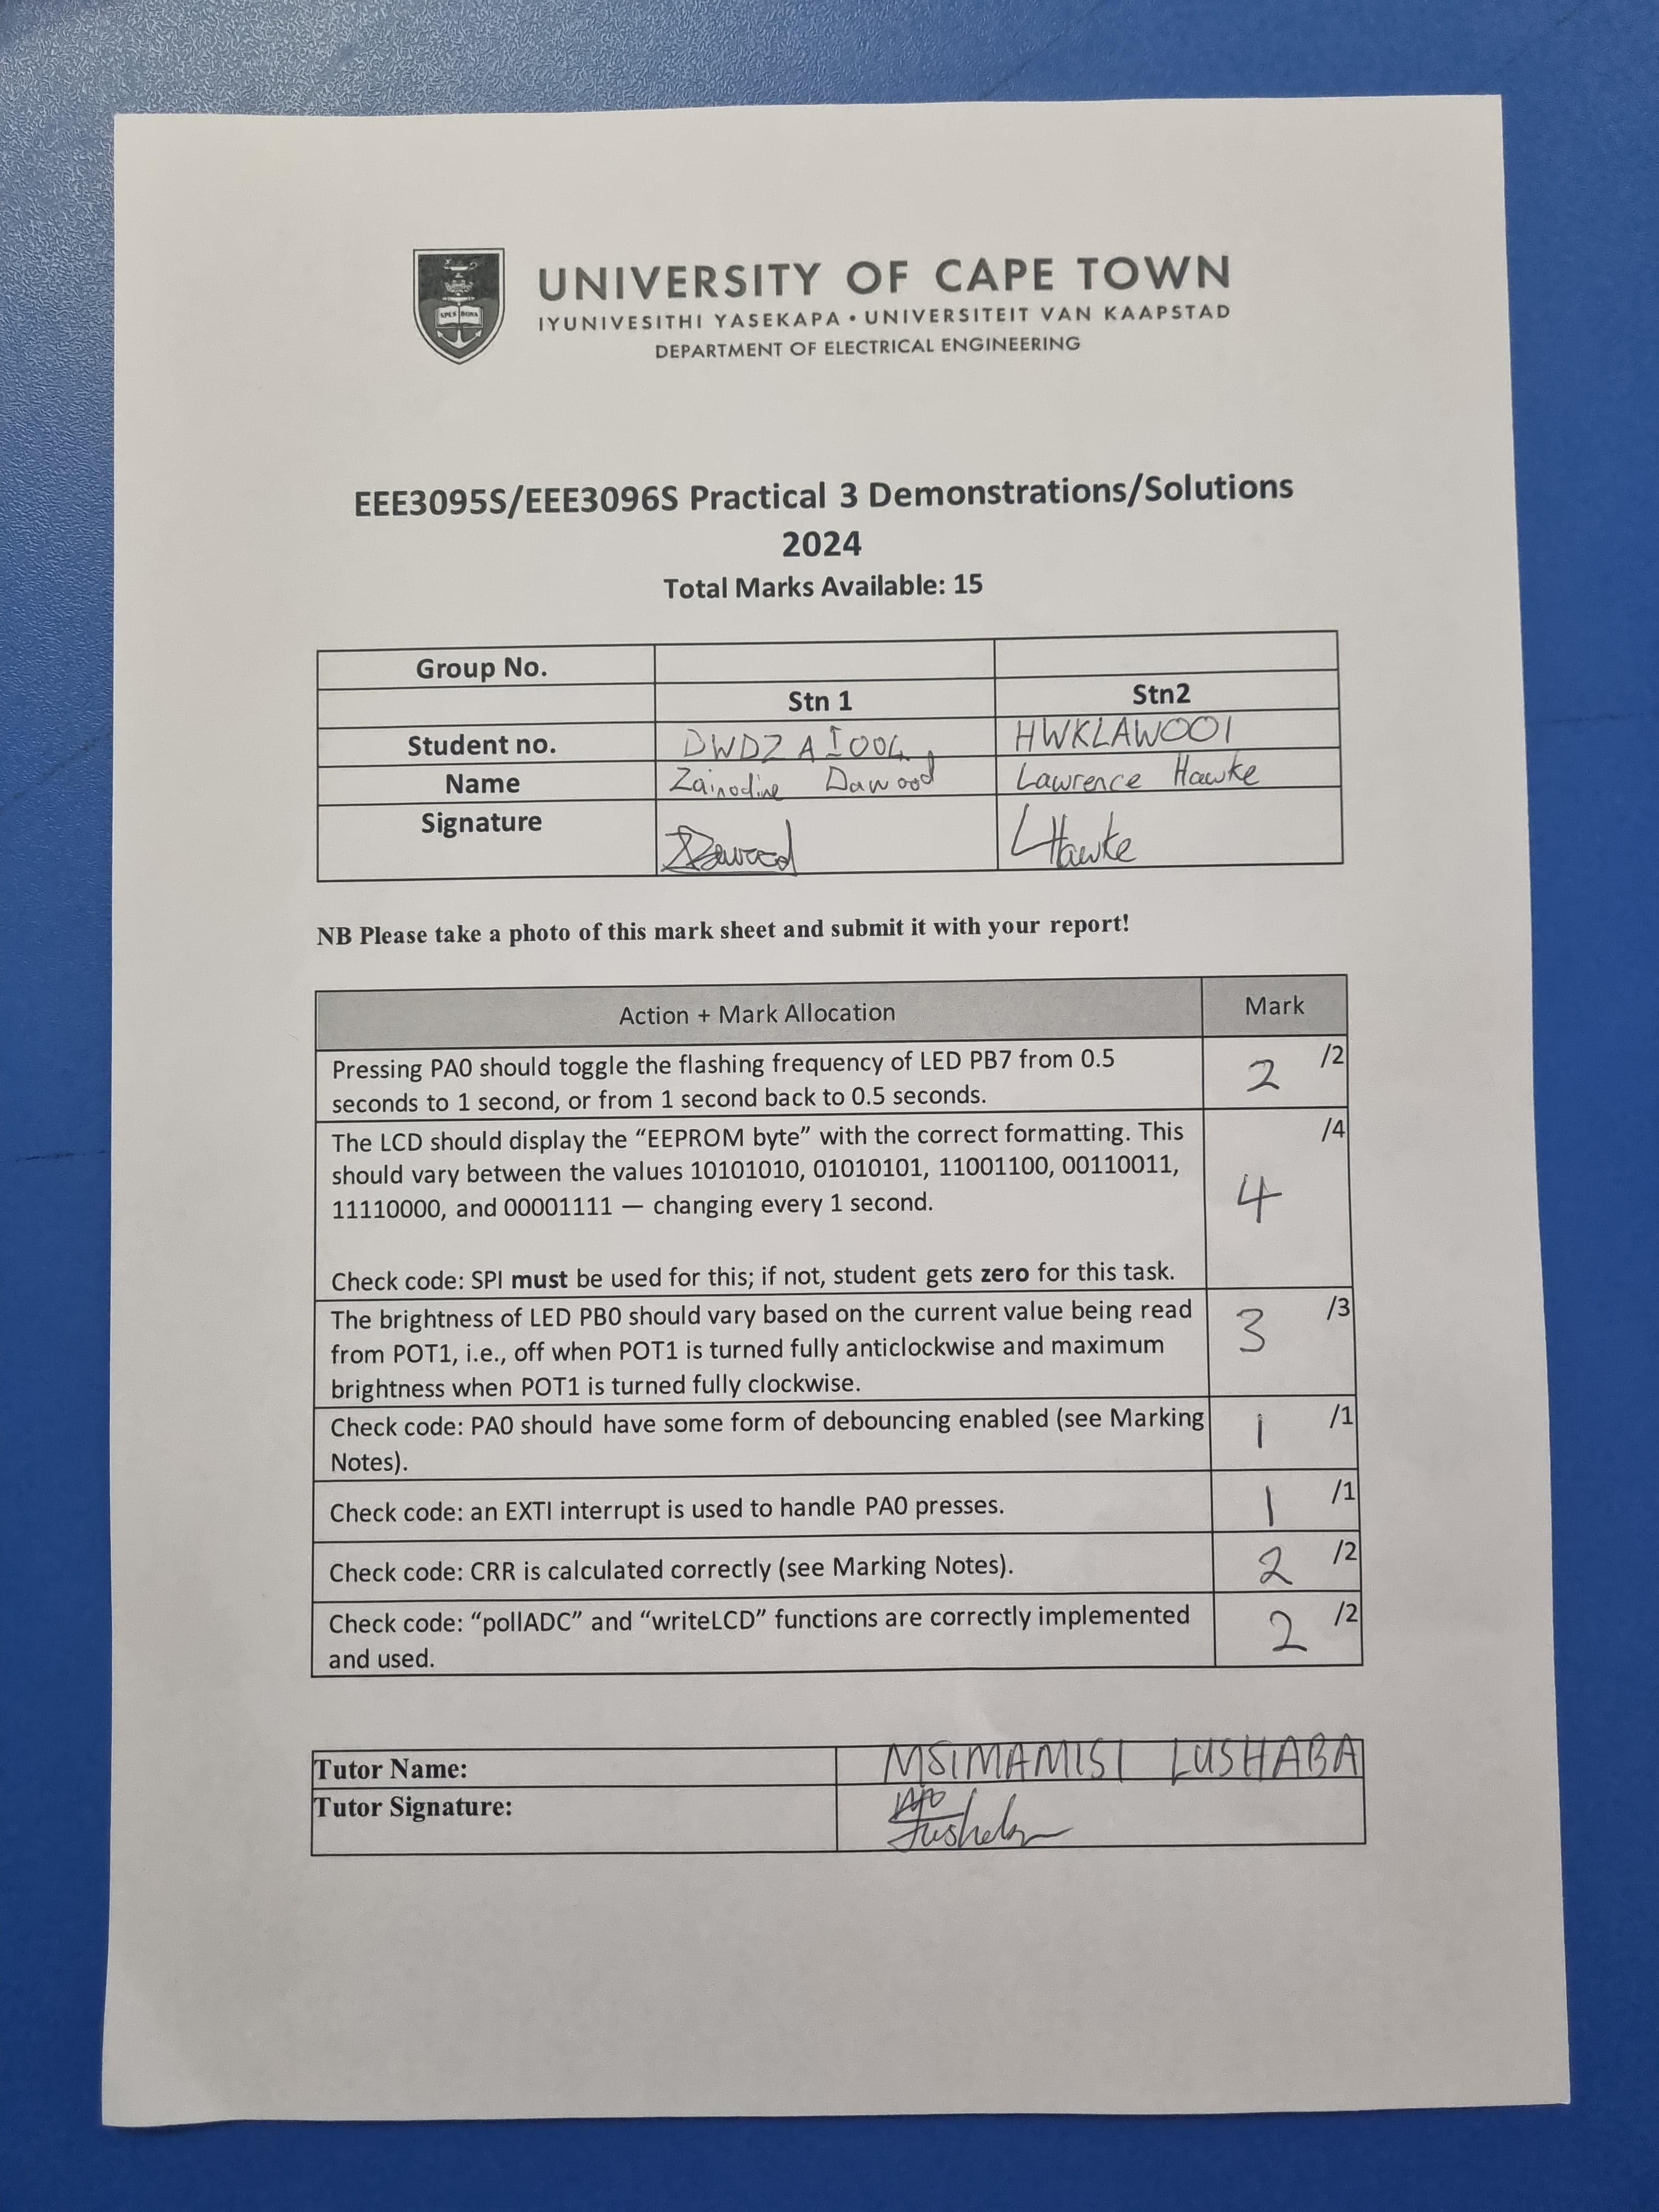 SPES BONA
UNIVERSITY OF CAPE TOWN
IYUNIVESITHI YASEKAPA • UNIVERSITEIT VAN KAAPSTAD
DEPARTMENT OF ELECTRICAL ENGINEERING
EEE3095S/EEE3096S Practical 3 Demonstrations/Solutions
2024
Total Marks Available: 15
Group No.
Stn 1 Stn2
Student no. DWDZAI004 HWKLAW001
Name Zainodine Dawood Lawrence Hawke
Signature Dawood LHawke
NB Please take a photo of this mark sheet and submit it with your report!
Action + Mark Allocation Mark
Pressing PA0 should toggle the flashing frequency of LED PB7 from 0.5 2 /2
seconds to 1 second, or from 1 second back to 0.5 seconds.
The LCD should display the “EEPROM byte” with the correct formatting. This 4 /4
should vary between the values 10101010, 01010101, 11001100, 00110011,
11110000, and 00001111 — changing every 1 second.
Check code: SPI must be used for this; if not, student gets zero for this task.
The brightness of LED PB0 should vary based on the current value being read 3 /3
from POT1, i.e., off when POT1 is turned fully anticlockwise and maximum
brightness when POT1 is turned fully clockwise.
Check code: PA0 should have some form of debouncing enabled (see Marking 1 /1
Notes).
Check code: an EXTI interrupt is used to handle PA0 presses. 1 /1
Check code: CRR is calculated correctly (see Marking Notes). 2 /2
Check code: “pollADC” and “writeLCD” functions are correctly implemented 2 /2
and used.
Tutor Name: MSIMAMISI LUSHABA
Tutor Signature: